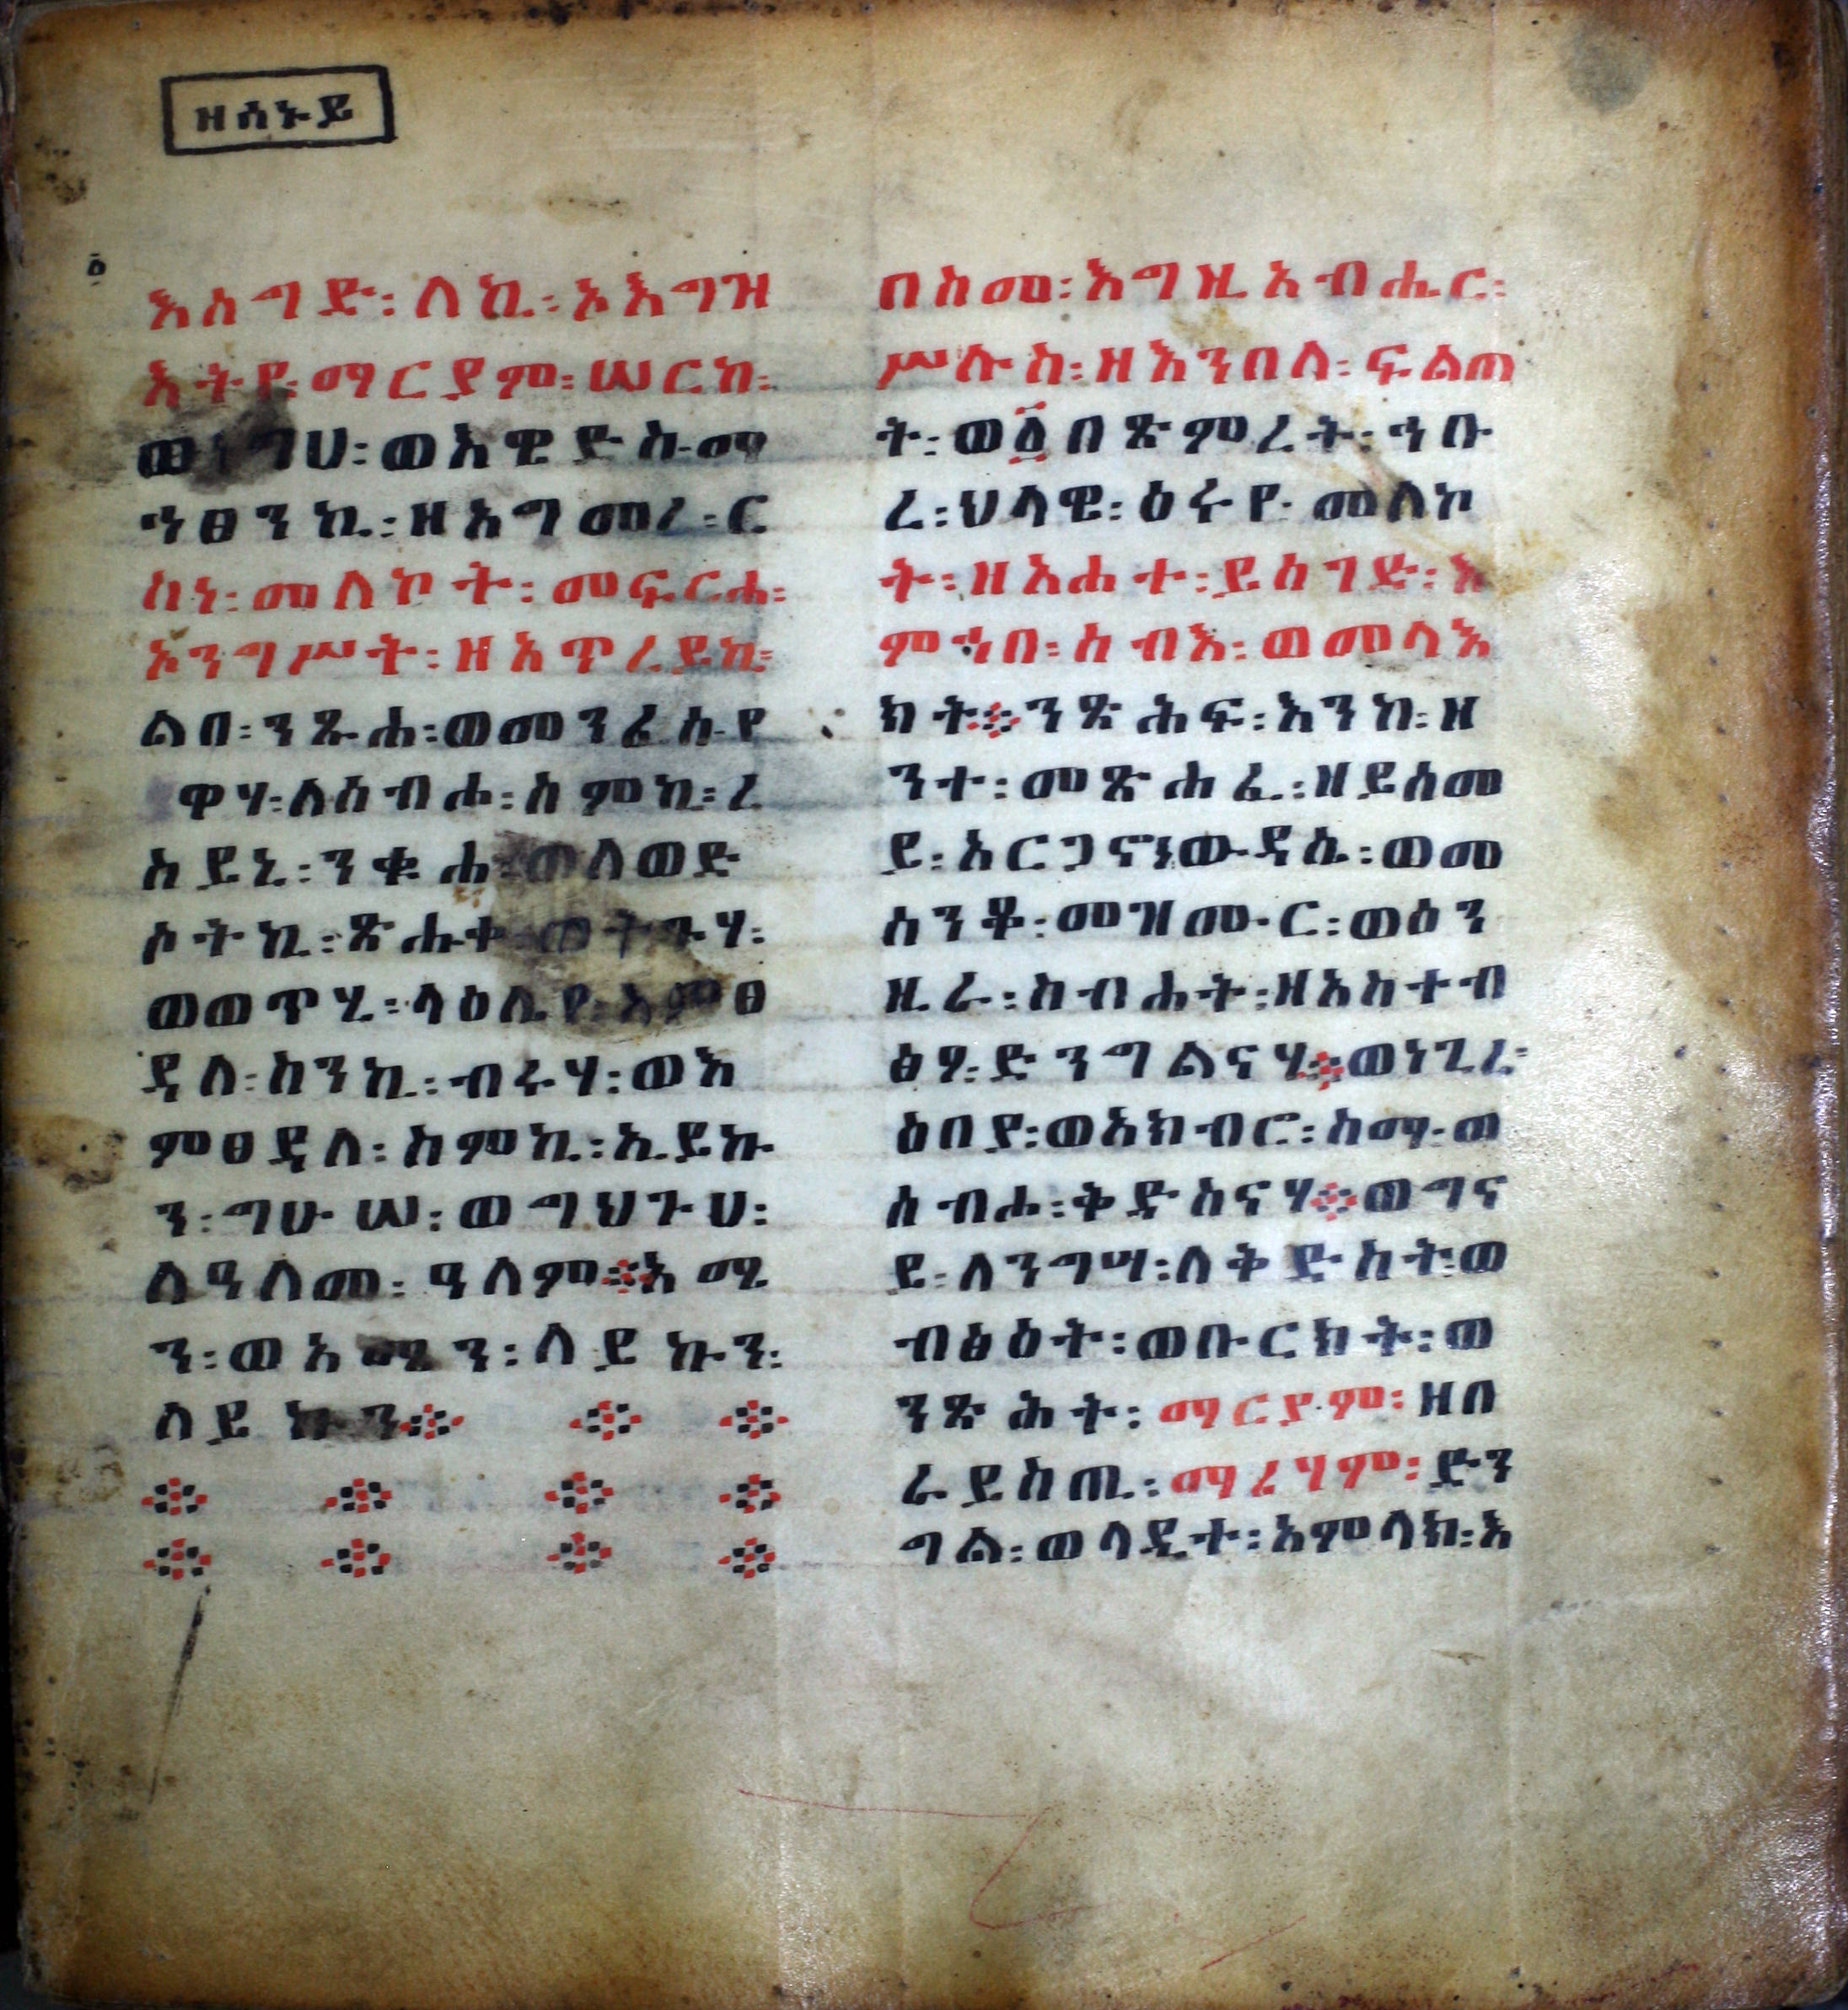 ዘሰኑይ
እሰግድ፡ለኪ፡ኦእግዝ
እትየ፡ማርያም፡ሠርከ፡
ወአዊድኩማ
ኀፀንኪ፡ዘአግመረ፡ር
ስነ፡መለኮት፡መፍርሐ፡
ኦንግሥት፡ዘአጥረይኩ፡
ልበ፡ንጹሐ፡ወመንፈሰ፡የ
ዋሃ፡ለሰብሐ፡ስምኪ፡ረ
ስይኒ፡ንቁሐ፡ወለወድ
ሶትኪ፡ጽሑቀ፡ወትጉሃ፡
ወወጥሂ፡ላዕሌየ፡እምፀ
ዳለ፡ስንኪ፡ብሩሃ፡ወእ
ምፀዳለ፡ስምኪ፡ኢይኩ
ን፡ግሁሠ፡ወግህጉሀ፡
ለዓለመ፡ዓለም፨አሜ
ን፡ወአሜን፡ለይኩን፡
ለይኩን፨ ፨ ፨
፨ ፨ ፨ ፨
፨ ፨ ፨ ፨
በስመ፡እግዚአብሔር፡
ሥሉስ፡ዘእንበለ፡ፍልጠ
ት፡ወ፩በጽምረት፡ኀቡ
ረ፡ህላዌ፡ዕሩየ፡መለኮ
ት፡ዘአሐተ፡ይሰገድ፡እ
ምኀበ፡ሰብእ፡ወመላእ
ክት፨ንጽሕፍ፡እንከ፡ዘ
ንተ፡መጽሐፈ፡ዘይሰመ
ይ፡አርጋኖነ፡ውዳሴ፡ወመ
ሰንቆ፡መዝሙር፡ወዕን
ዚራ፡ስብሐት፡ዘአስተብ
ፅዖ፡ድንግልናሃ፨ወነጊረ፡
ዕበያ፡ወአክብሮ፡ስማ፡ወ
ሰብሐ፡ቅድስናሃ፨ወግና
ይ፡ለንግሣ፡ለቅድስት፡ወ
ብፅዕት፡ወቡርክት፡ወ
ንጽሕት፡ማርያም፡ዘበ
ራይስጢ፡ማሪሃም፡ድን
ግል፡ወላዲተ፡አምላክ፡እ